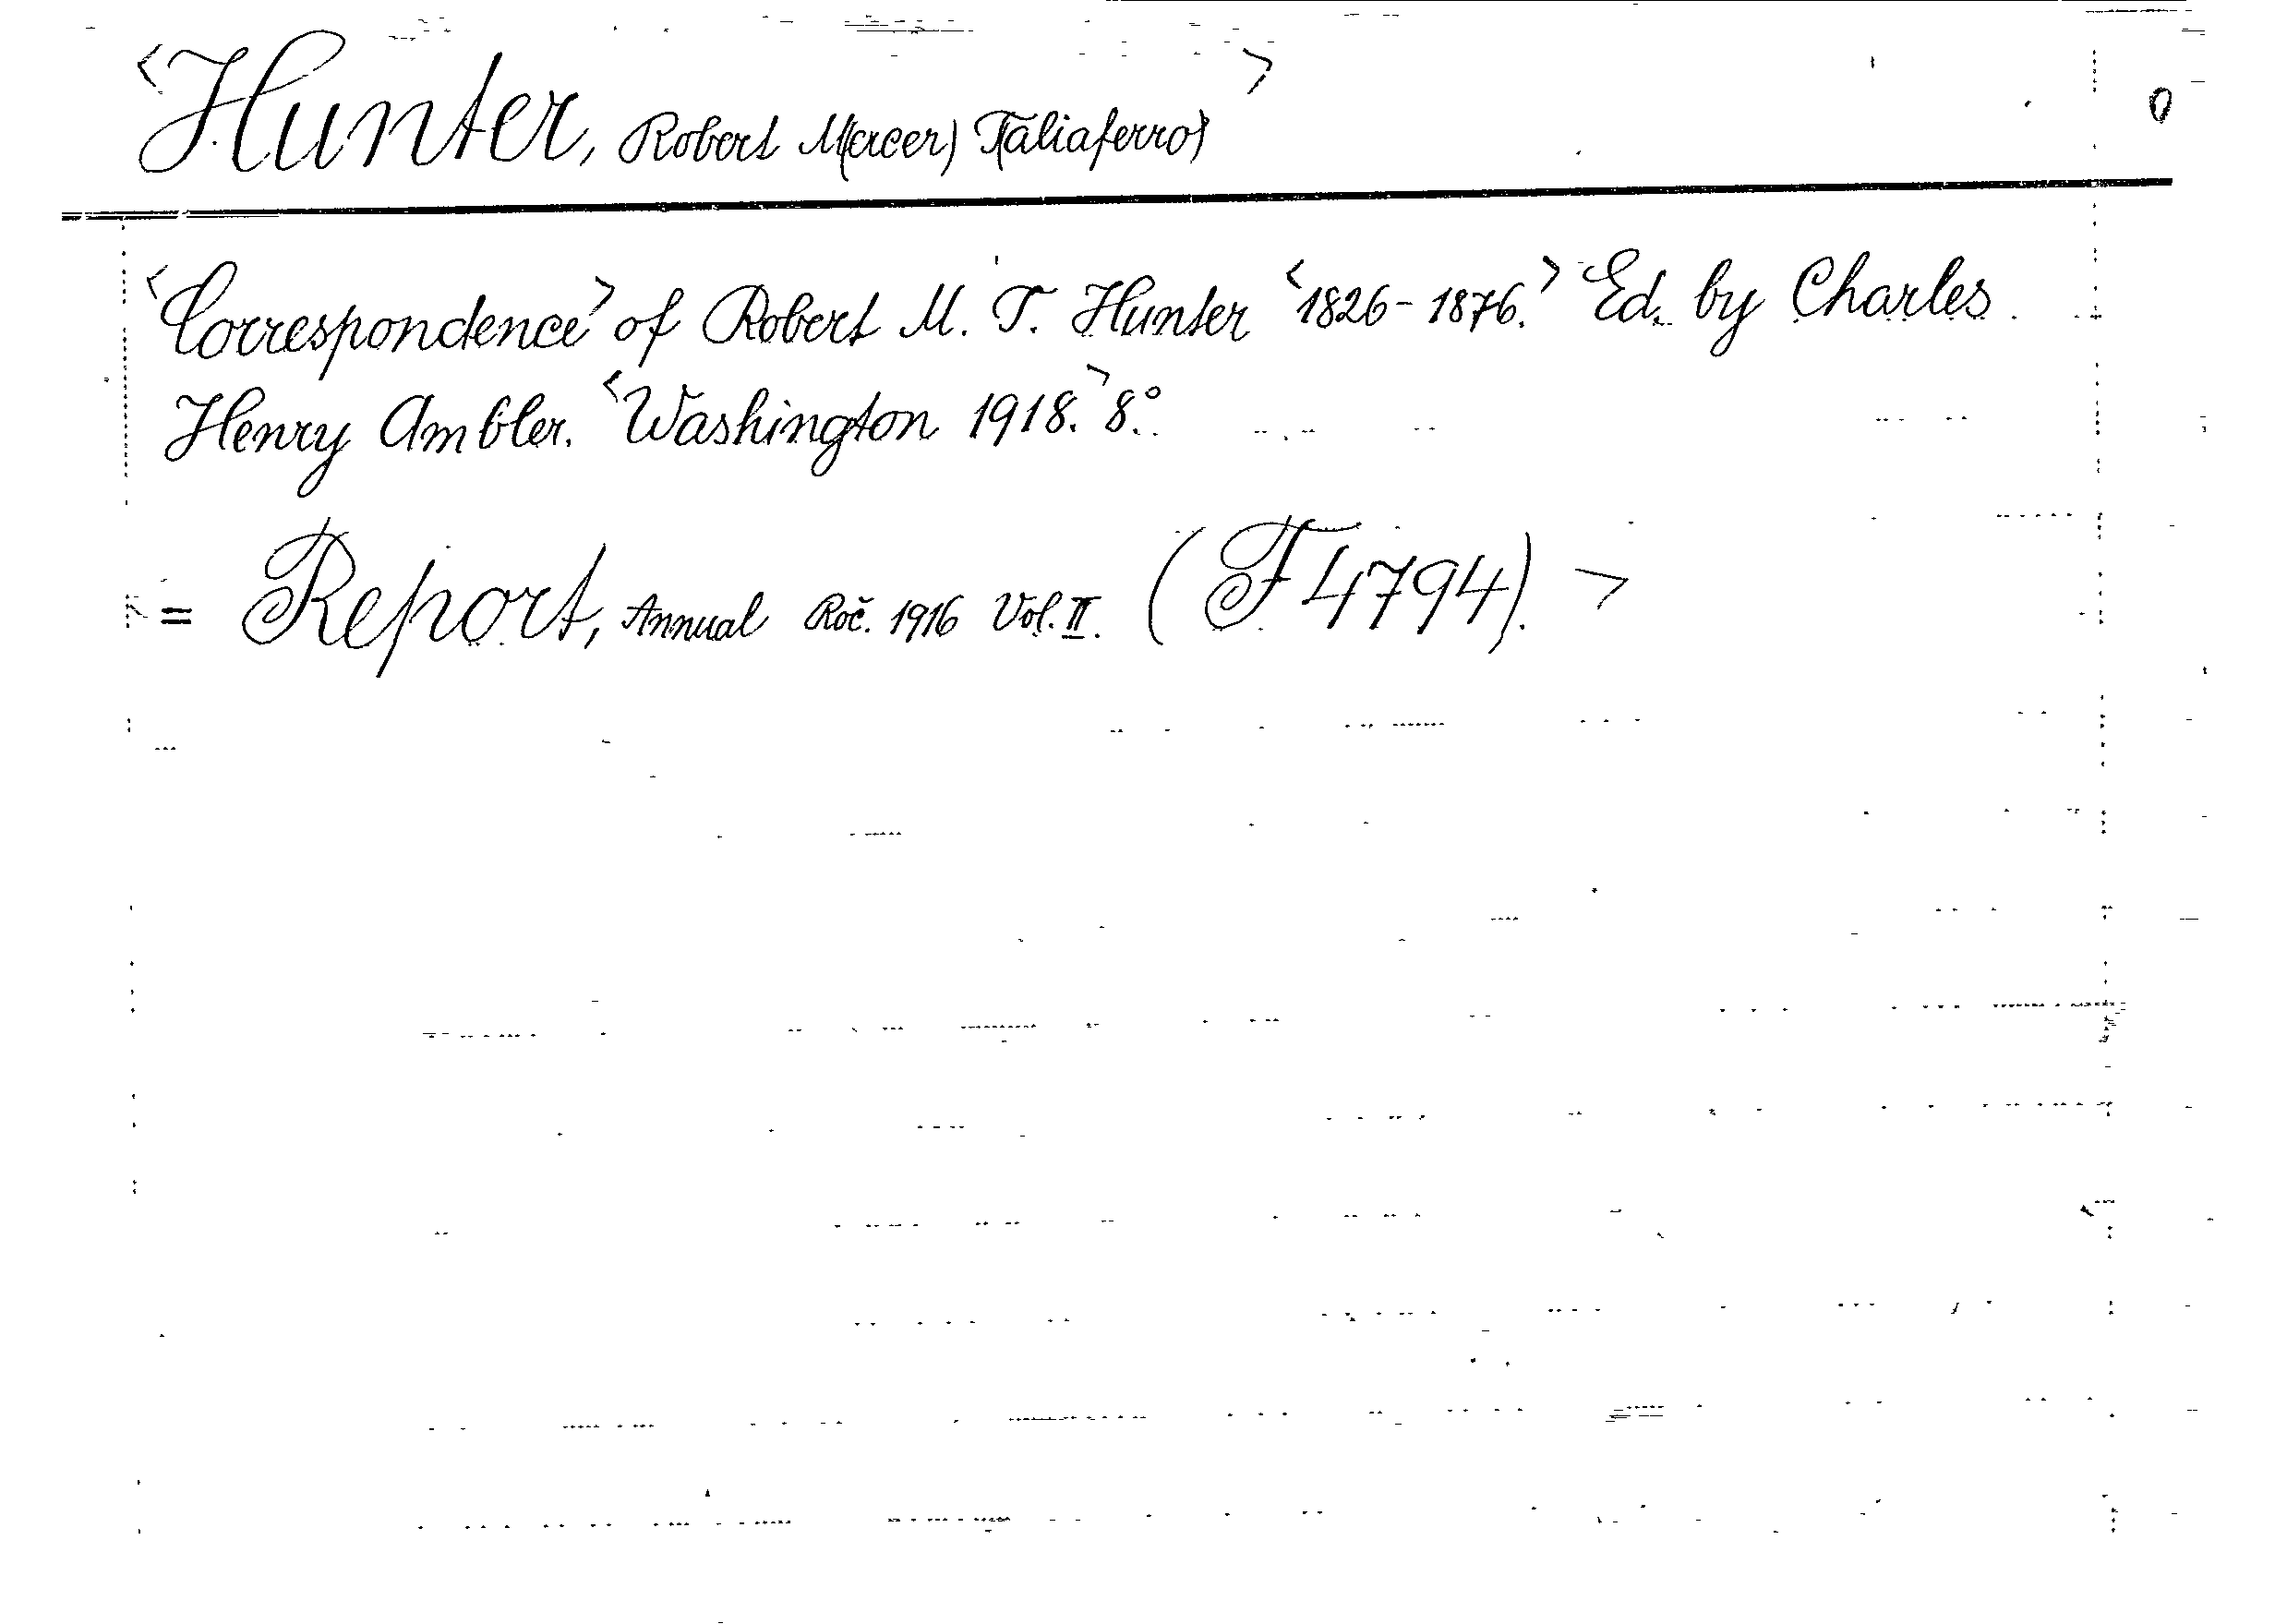 <Hunter, Robert M(ercer) T(aliaferro)> 0
<Correspondence> of Robert M. T. Hunter <1826-1876.> Ed. by Charles
Henry Ambler. <Washington 1918.> 8°.
= Report, Annual Roč. 1916 Vol. II. (F 4794). >